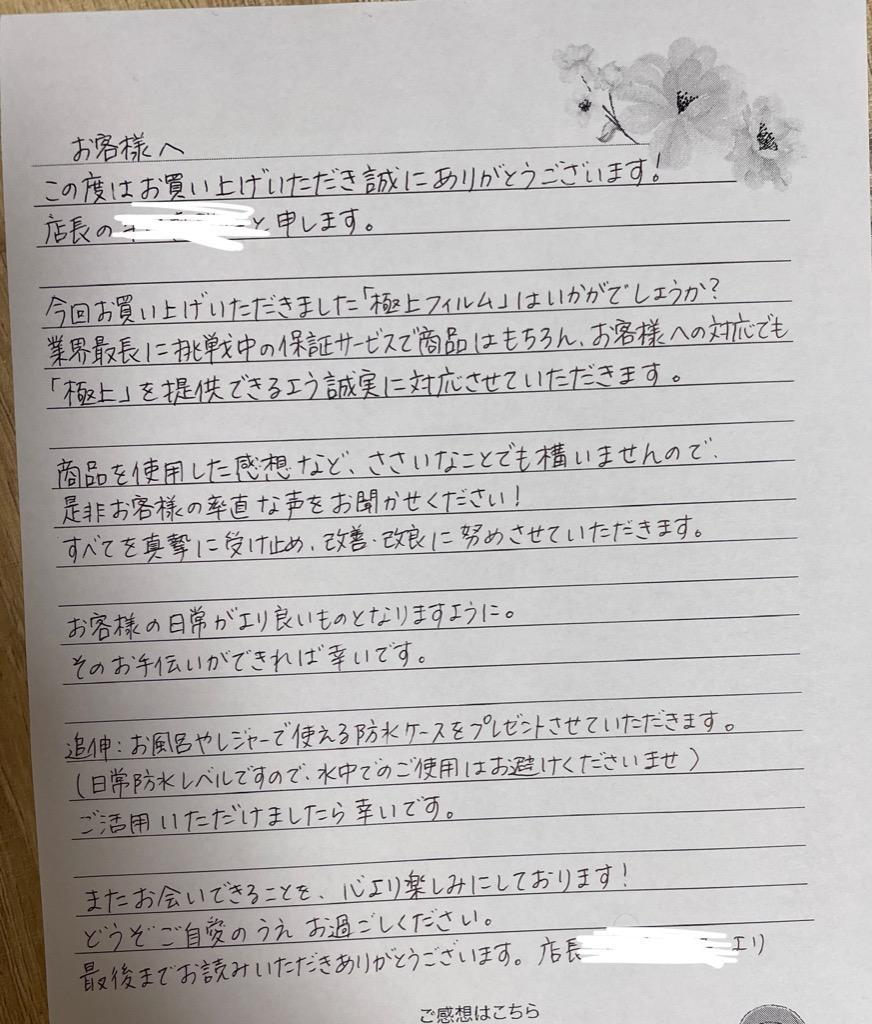 お客様へ
この度はお買い上げいただき誠にありがとうございます!
店長の と申します。
今回お買い上げいただきました「極上フィルム」はいかがでしょうか?
業界最長に挑戦中の保証サービスで商品はもちろん、お客様への対応でも
「極上」を提供できるよう誠実に対応させていただきます。
商品を使用した感想など、ささいなことでも構いませんので、
是非お客様の率直な声をお聞かせください!
すべてを真摯に受け止め、改善・改良に努めさせていただきます。
お客様の日常がより良いものとなりますように。
そのお手伝いができれば幸いです。
追伸:お風呂やレジャーで使える防水ケースをプレゼントさせていただきます。
(日常防水レベルですので、水中でのご使用はお避けくださいませ)
ご活用いただけましたら幸いです。
またお会いできることを、心より楽しみにしております!
どうぞご自愛のうえお過ごしください。
最後までお読みいただきありがとうございます。店長 より
ご感想はこちら